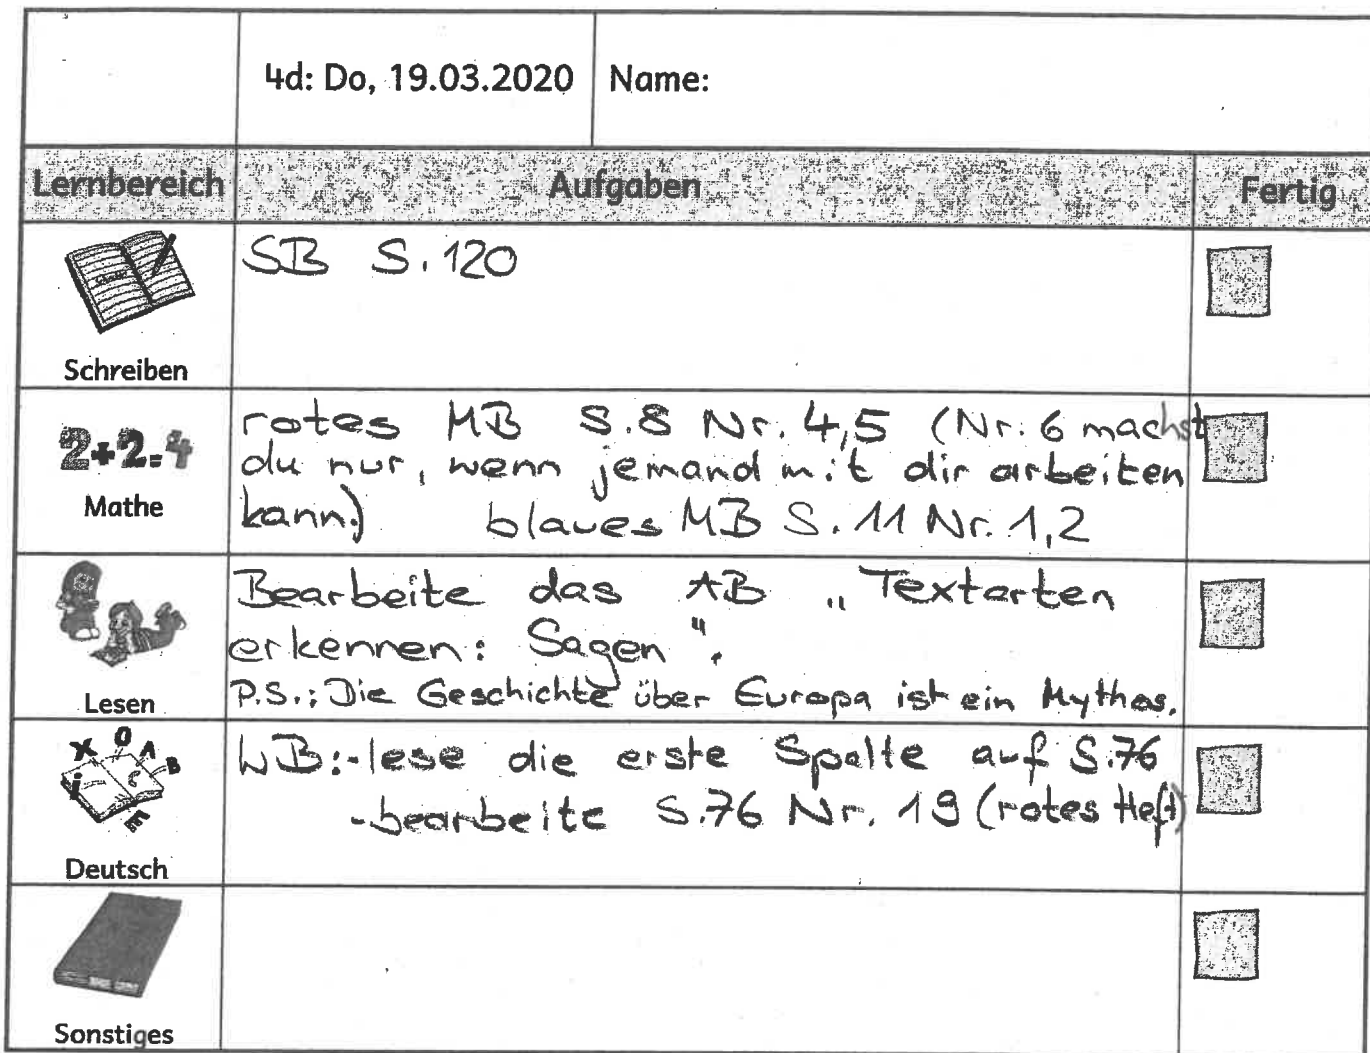 4d: Do, 19.03.2020 Name:
Lernbereich Aufgaben Fertig
SB S. 120
Schreiben
rotes MB S. 8 Nr. 4,5 (Nr. 6 machst
2+2=4
du nur, wenn jemand mit dir arbeiten
Mathe
kann.) blaues MB S. 11 Nr. 1,2
Bearbeite das AB „Textarten
erkennen: Sagen“.
P.S.: Die Geschichte über Europa ist ein Mythos.
Lesen
X O A B
i E
WB:-lese die erste Spalte auf S.76
-bearbeite S.76 Nr. 19 (rotes Heft)
Deutsch
Sonstiges